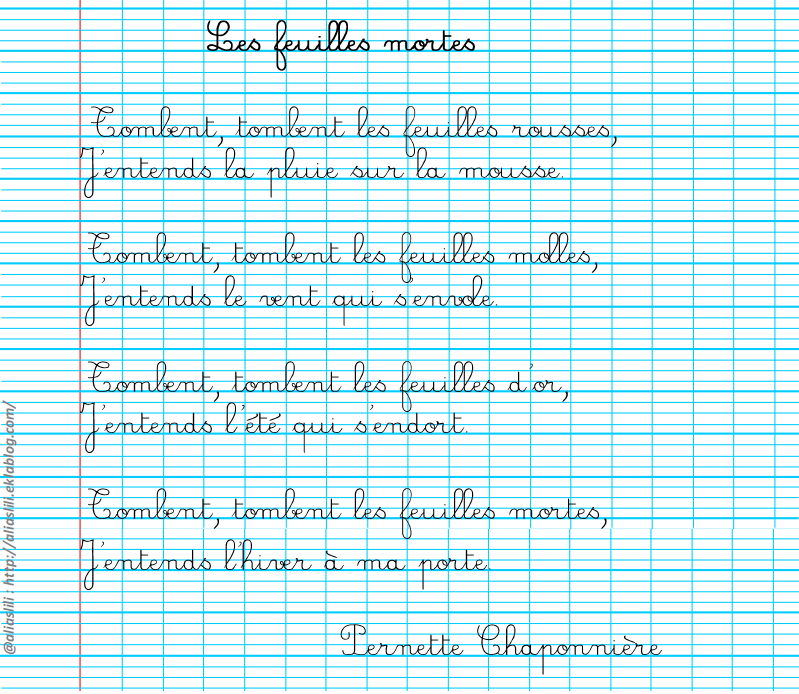 Les feuilles mortes
Tombent, tombent les feuilles rousses,
J'entends la pluie sur la mousse.
Tombent, tombent les feuilles molles,
J'entends le vent qui s'envole.
Tombent, tombent les feuilles d'or,
J'entends l'été qui s'endort.
Tombent, tombent les feuilles mortes,
J'entends l'hiver à ma porte.
Pernette Chaponnière
@aliaslili : http://aliaslili.eklablog.com/